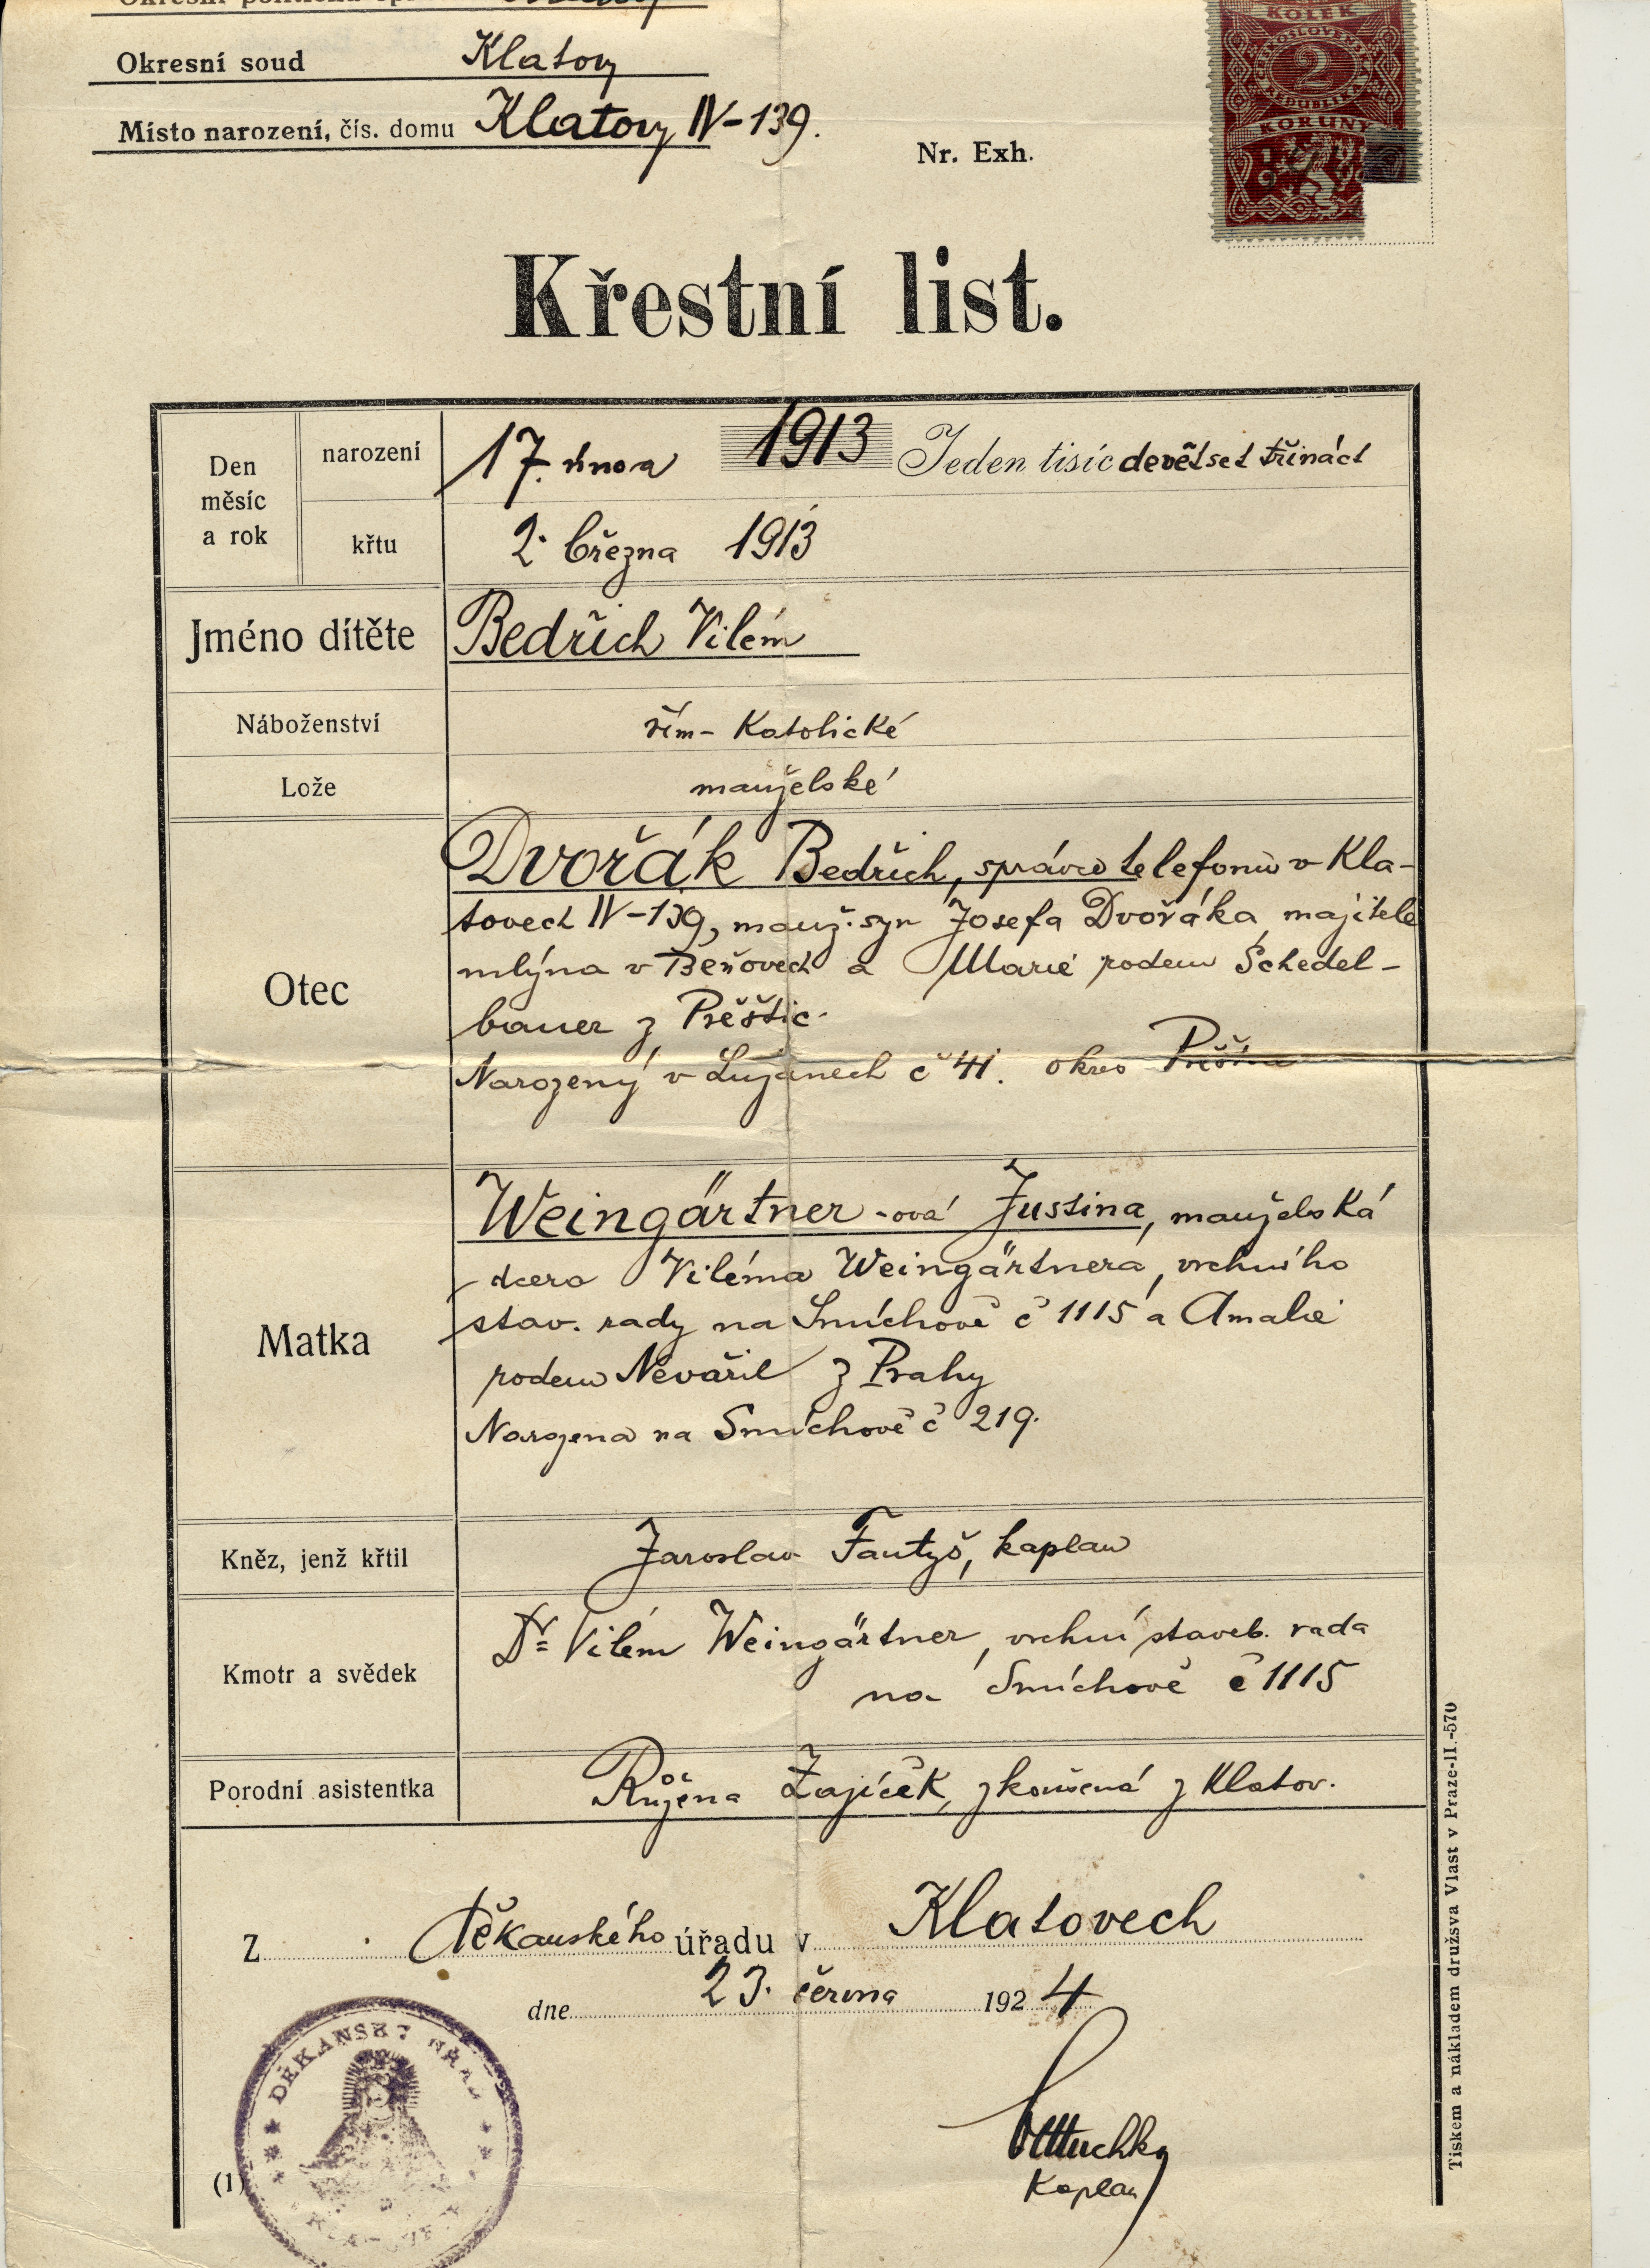 Okresní soud Klatovy
Místo narození, čís. domu Klatovy IV-139.
Nr. Exh.
KOLEK
ČESKOSLOVENSKÁ
2
REPUBLIKA
KORUNY
Křestní list.
Den měsíc a rok
narození 17. února 1913 Jeden tisíc devětset třináct
křtu 2. března 1913
Jméno dítěte Bedřich Vilém
Náboženství řím-katolické
Lože manželské
Otec
Dvořák Bedřich, správce telefonů v Kla-
tovech IV-139, manž. syn Josefa Dvořáka, majitele
mlýna v Beňovech a Marie rodem Schedel-
bauer z Přeštic.
Narozený v Lužanech č 41. okres
Matka
Weingärtner-ová Justina, manželská
dcera Viléma Weingärtnera, vrchního
stav. rady na Smíchově č 1115 a Amalie
rodem Nevařil z Prahy
Narozena na Smíchově č 219.
Kněz, jenž křtil Jaroslav Fantyš, kaplan
Kmotr a svědek Dr Vilém Weingärtner, vrchní staveb. rada
na Smíchově č 1115
Porodní asistentka Růžena Zajíček, zkoušená z Klatov.
Z děkanského úřadu v Klatovech
dne 23. června 1924
DĚKANSKÝ
kaplan
(1)
Tiskem a nákladem družsva Vlast v Praze-II.-570